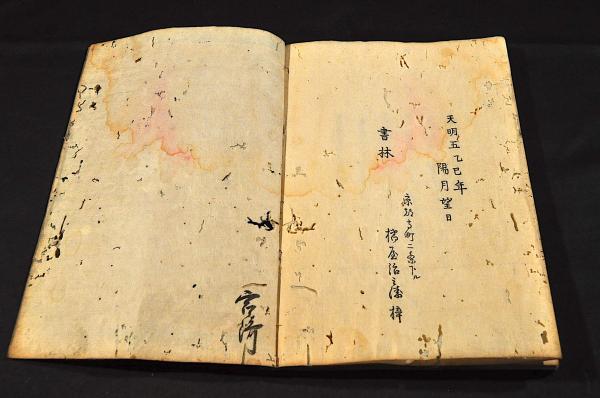 天明五乙巳年
陽月望日
書林
京都寺町二条下ル
橘屋治兵衛 梓
宮崎